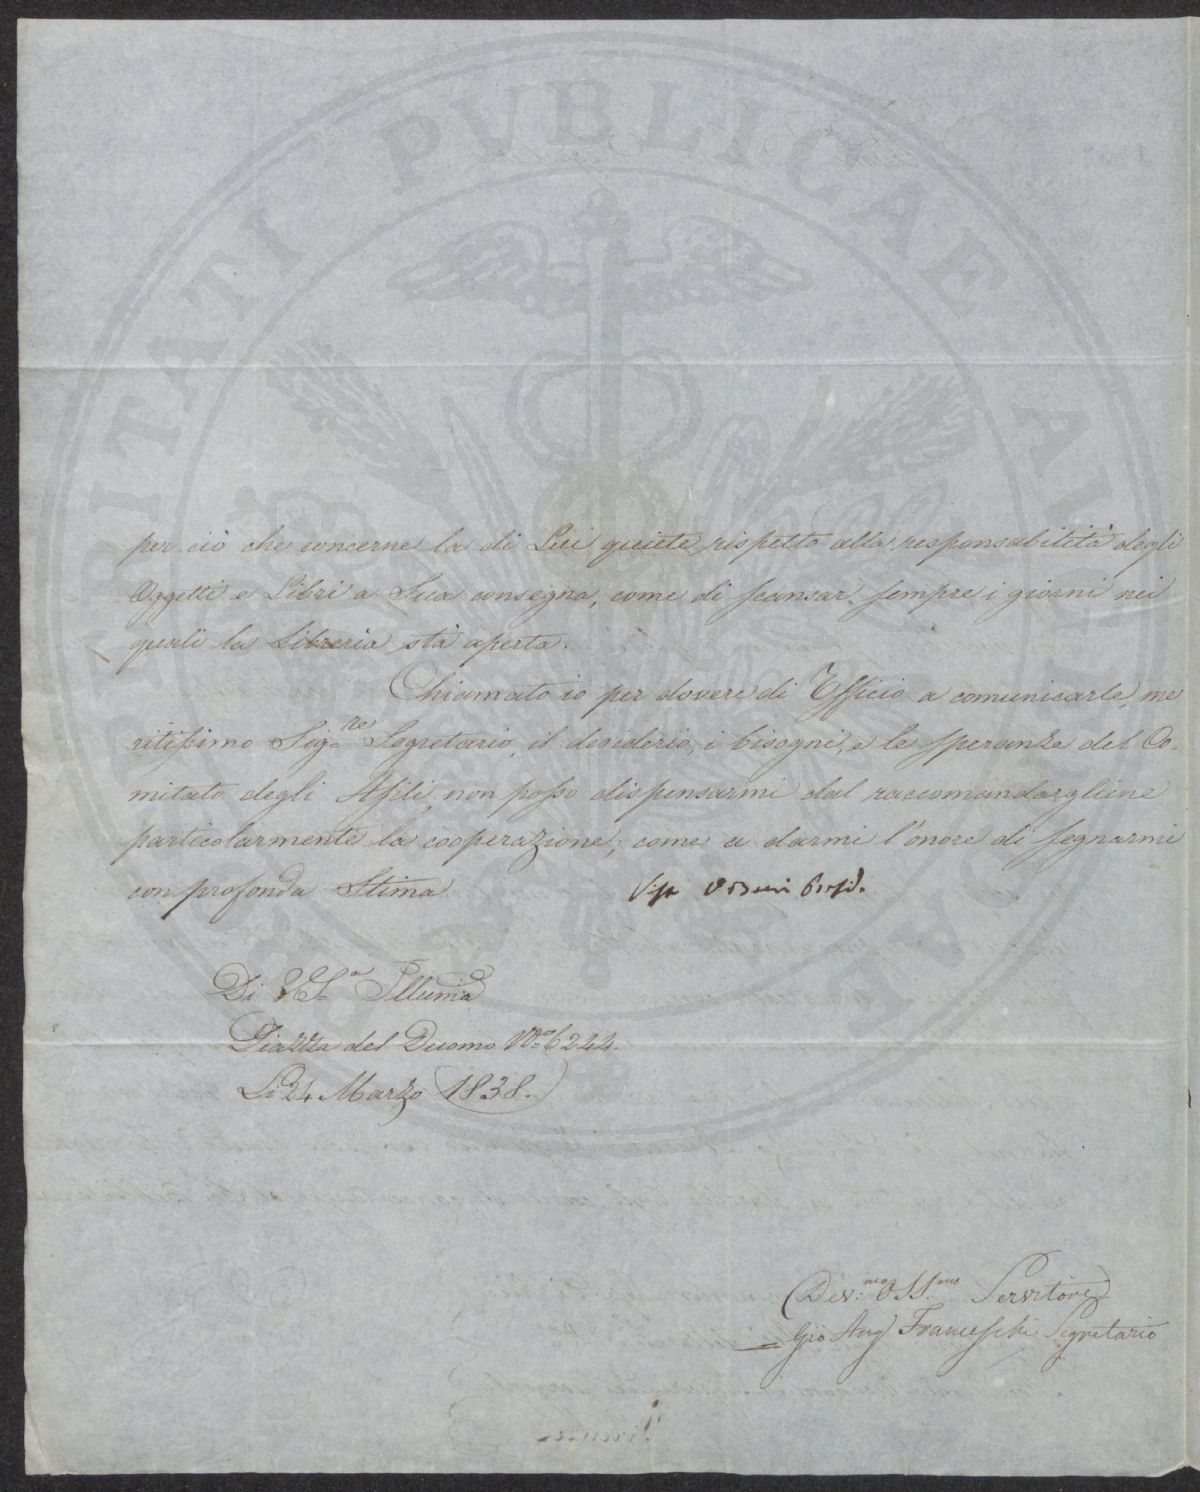 per ciò che concerne la di Lei quiete rispetto alla responsabilità degli
Oggetti e Libri a Sua consegna, come di scansar sempre i giorni nei
quali la Libreria stà aperta.
Chiamato io per dovere di Uffìcio a comunicarle, me
ritissimo Sig.re Segretario, il desiderio, i bisogni, e le speranze del Co-
mitato degli Asili, non posso dispensarmi dal raccomandargliene
particolarmente la cooperazione; come a darmi l'onore di segnarmi
con profonda Stima
Di V.S.a Illuma
Piazza del Duomo No. 6244.
Li 24 Marzo 1838.
Dev.mo OSS.mo Servitore
Gio Aug Franceschi Segretario
PUBLICAE